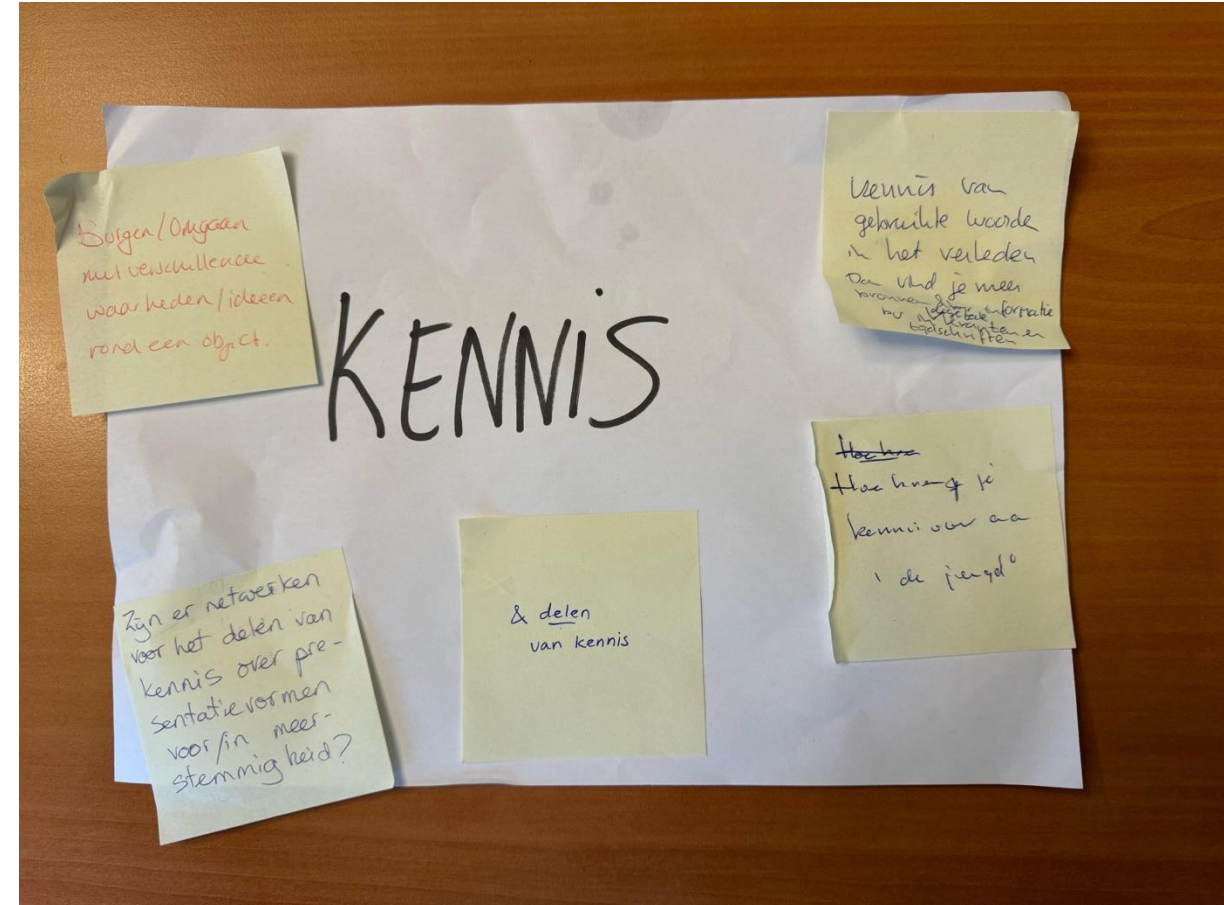 Borgen/Omgaan
met verschillende
waarheden/ideeen
rond een object.
KENNIS
kennis van
gebruikte woorde
in het verleden
Dan vind je meer
bronnen informatie
bij in kranten en
tijdschriften
Hoe breng je
kennis over aa
'de jeugd"
& delen
van kennis
Zijn er netwerken
voor het delen van
kennis over pre-
sentatievormen
voor/in meer-
stemmigheid?